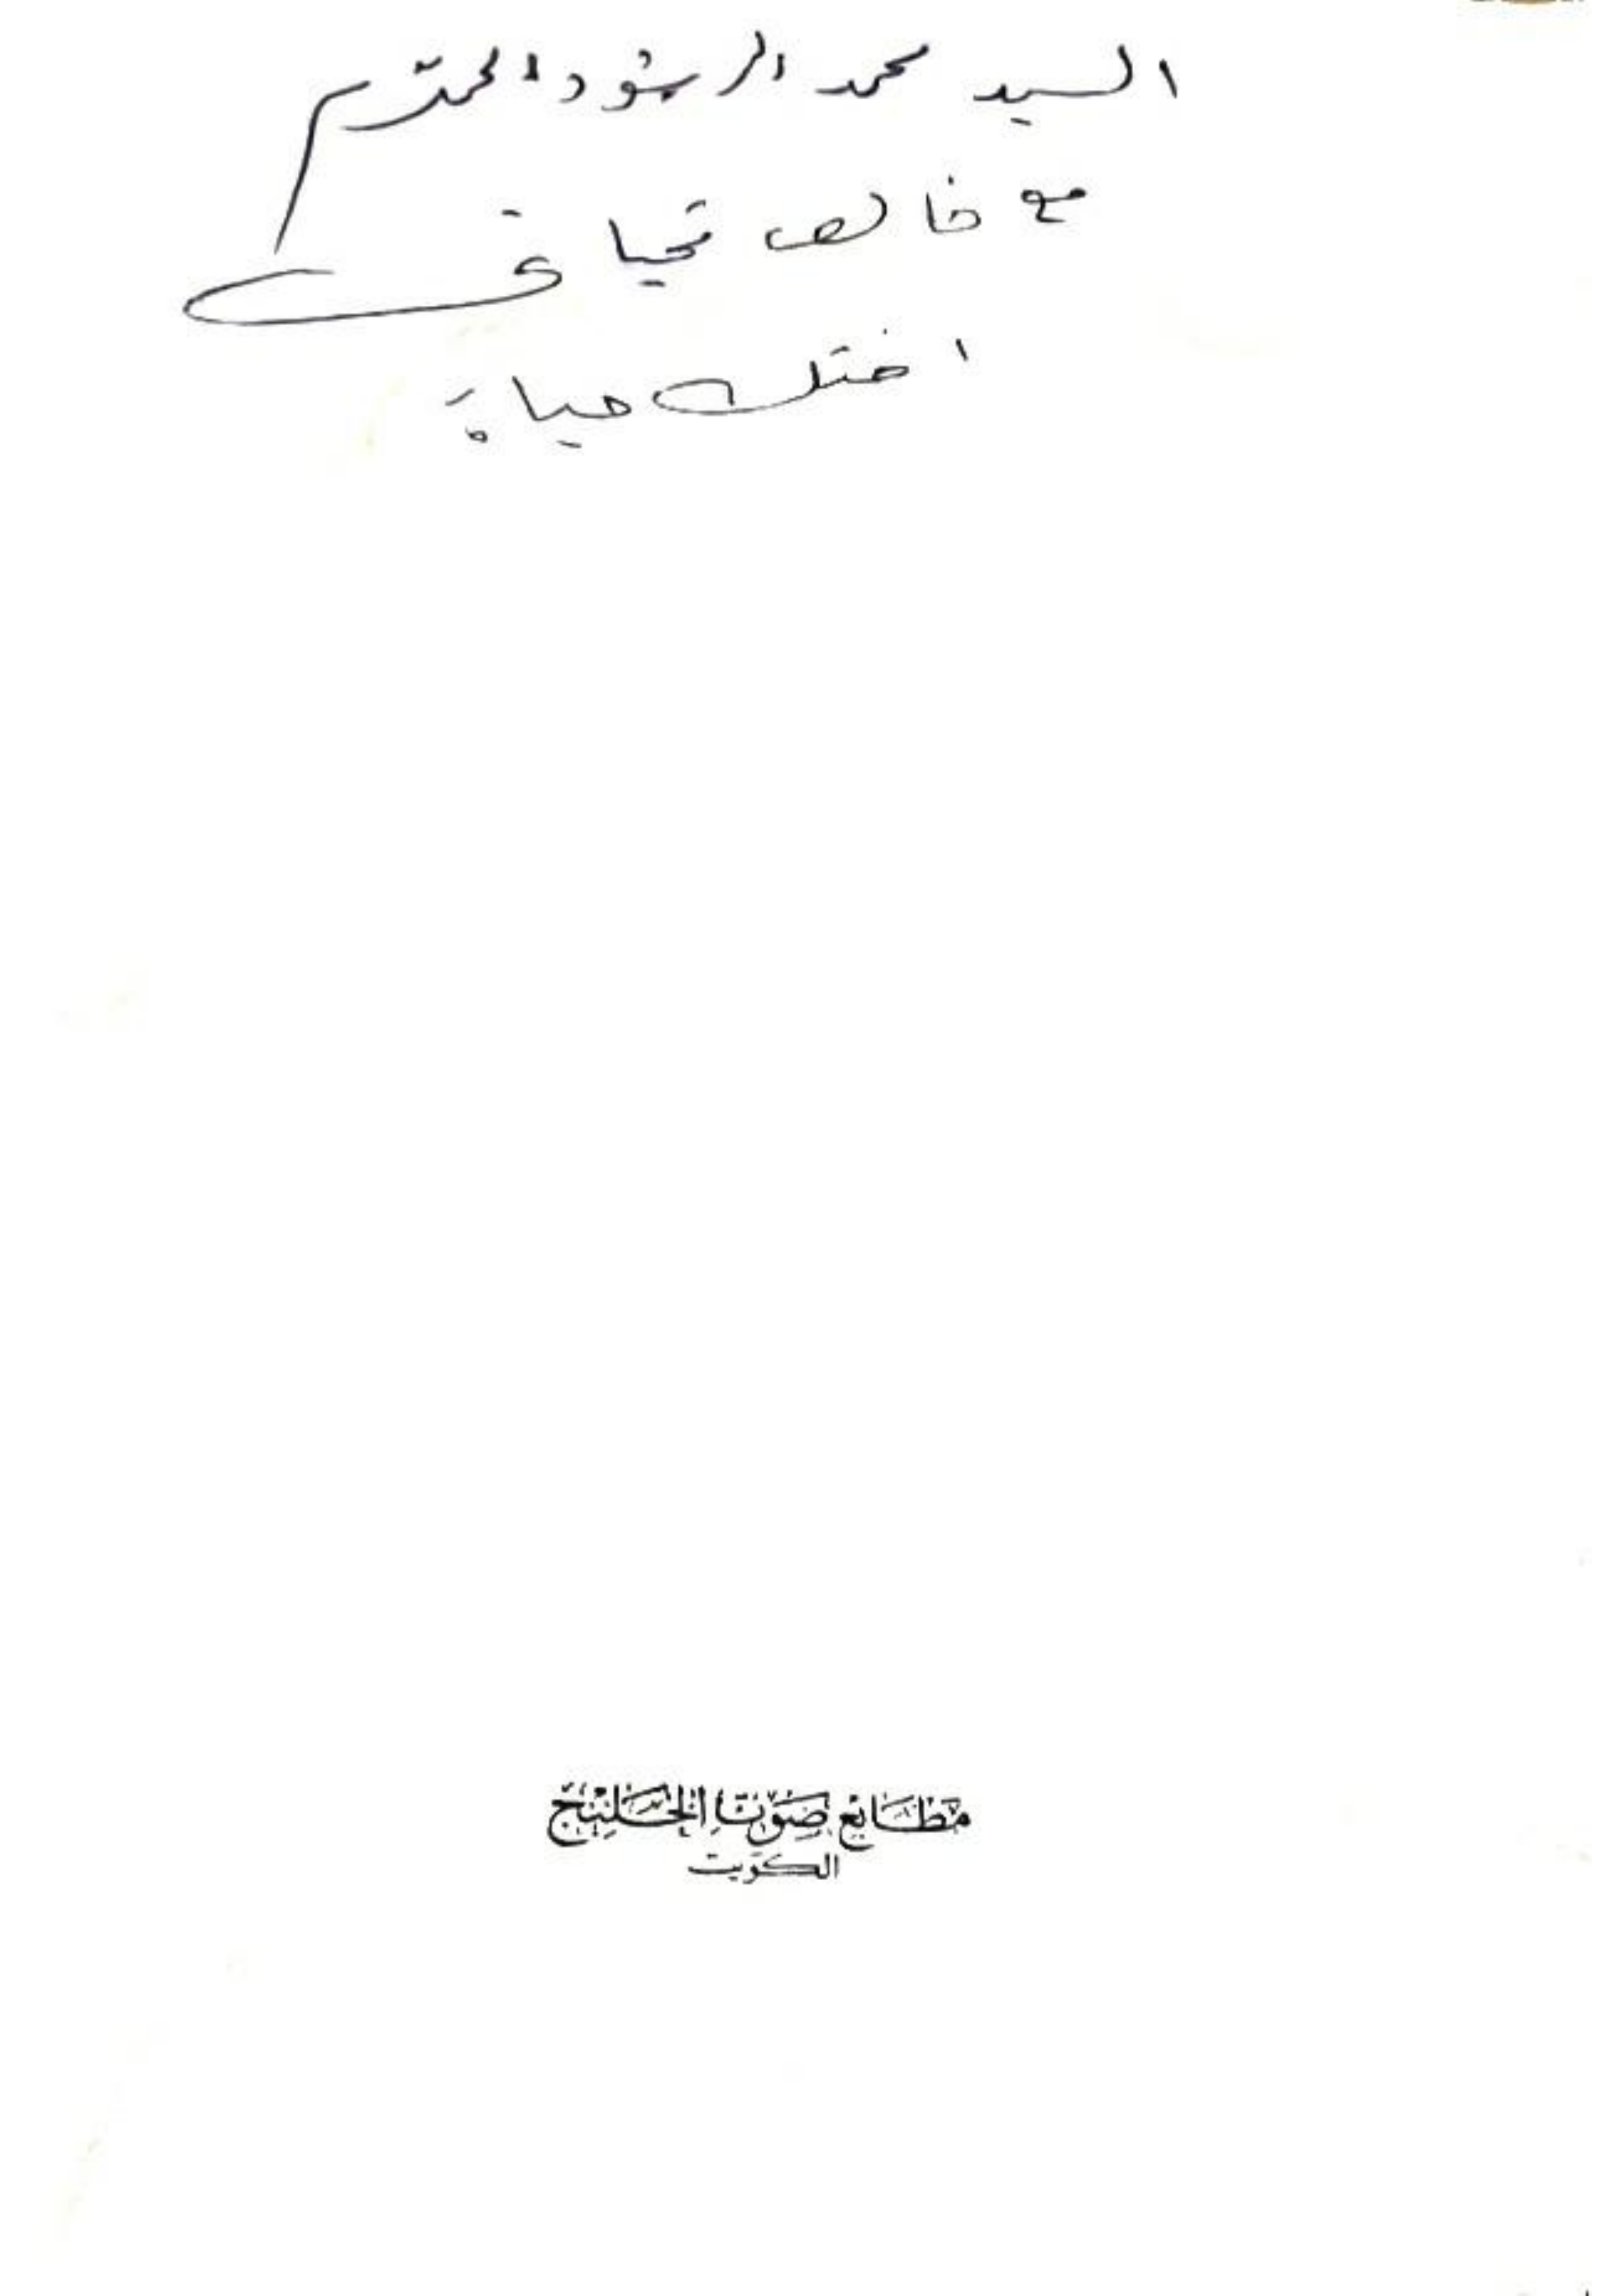 السيد محمد الرشود المحترم
مع خالص تحياتي
اختك حياة
مطابع صوت الخليج
الكويت